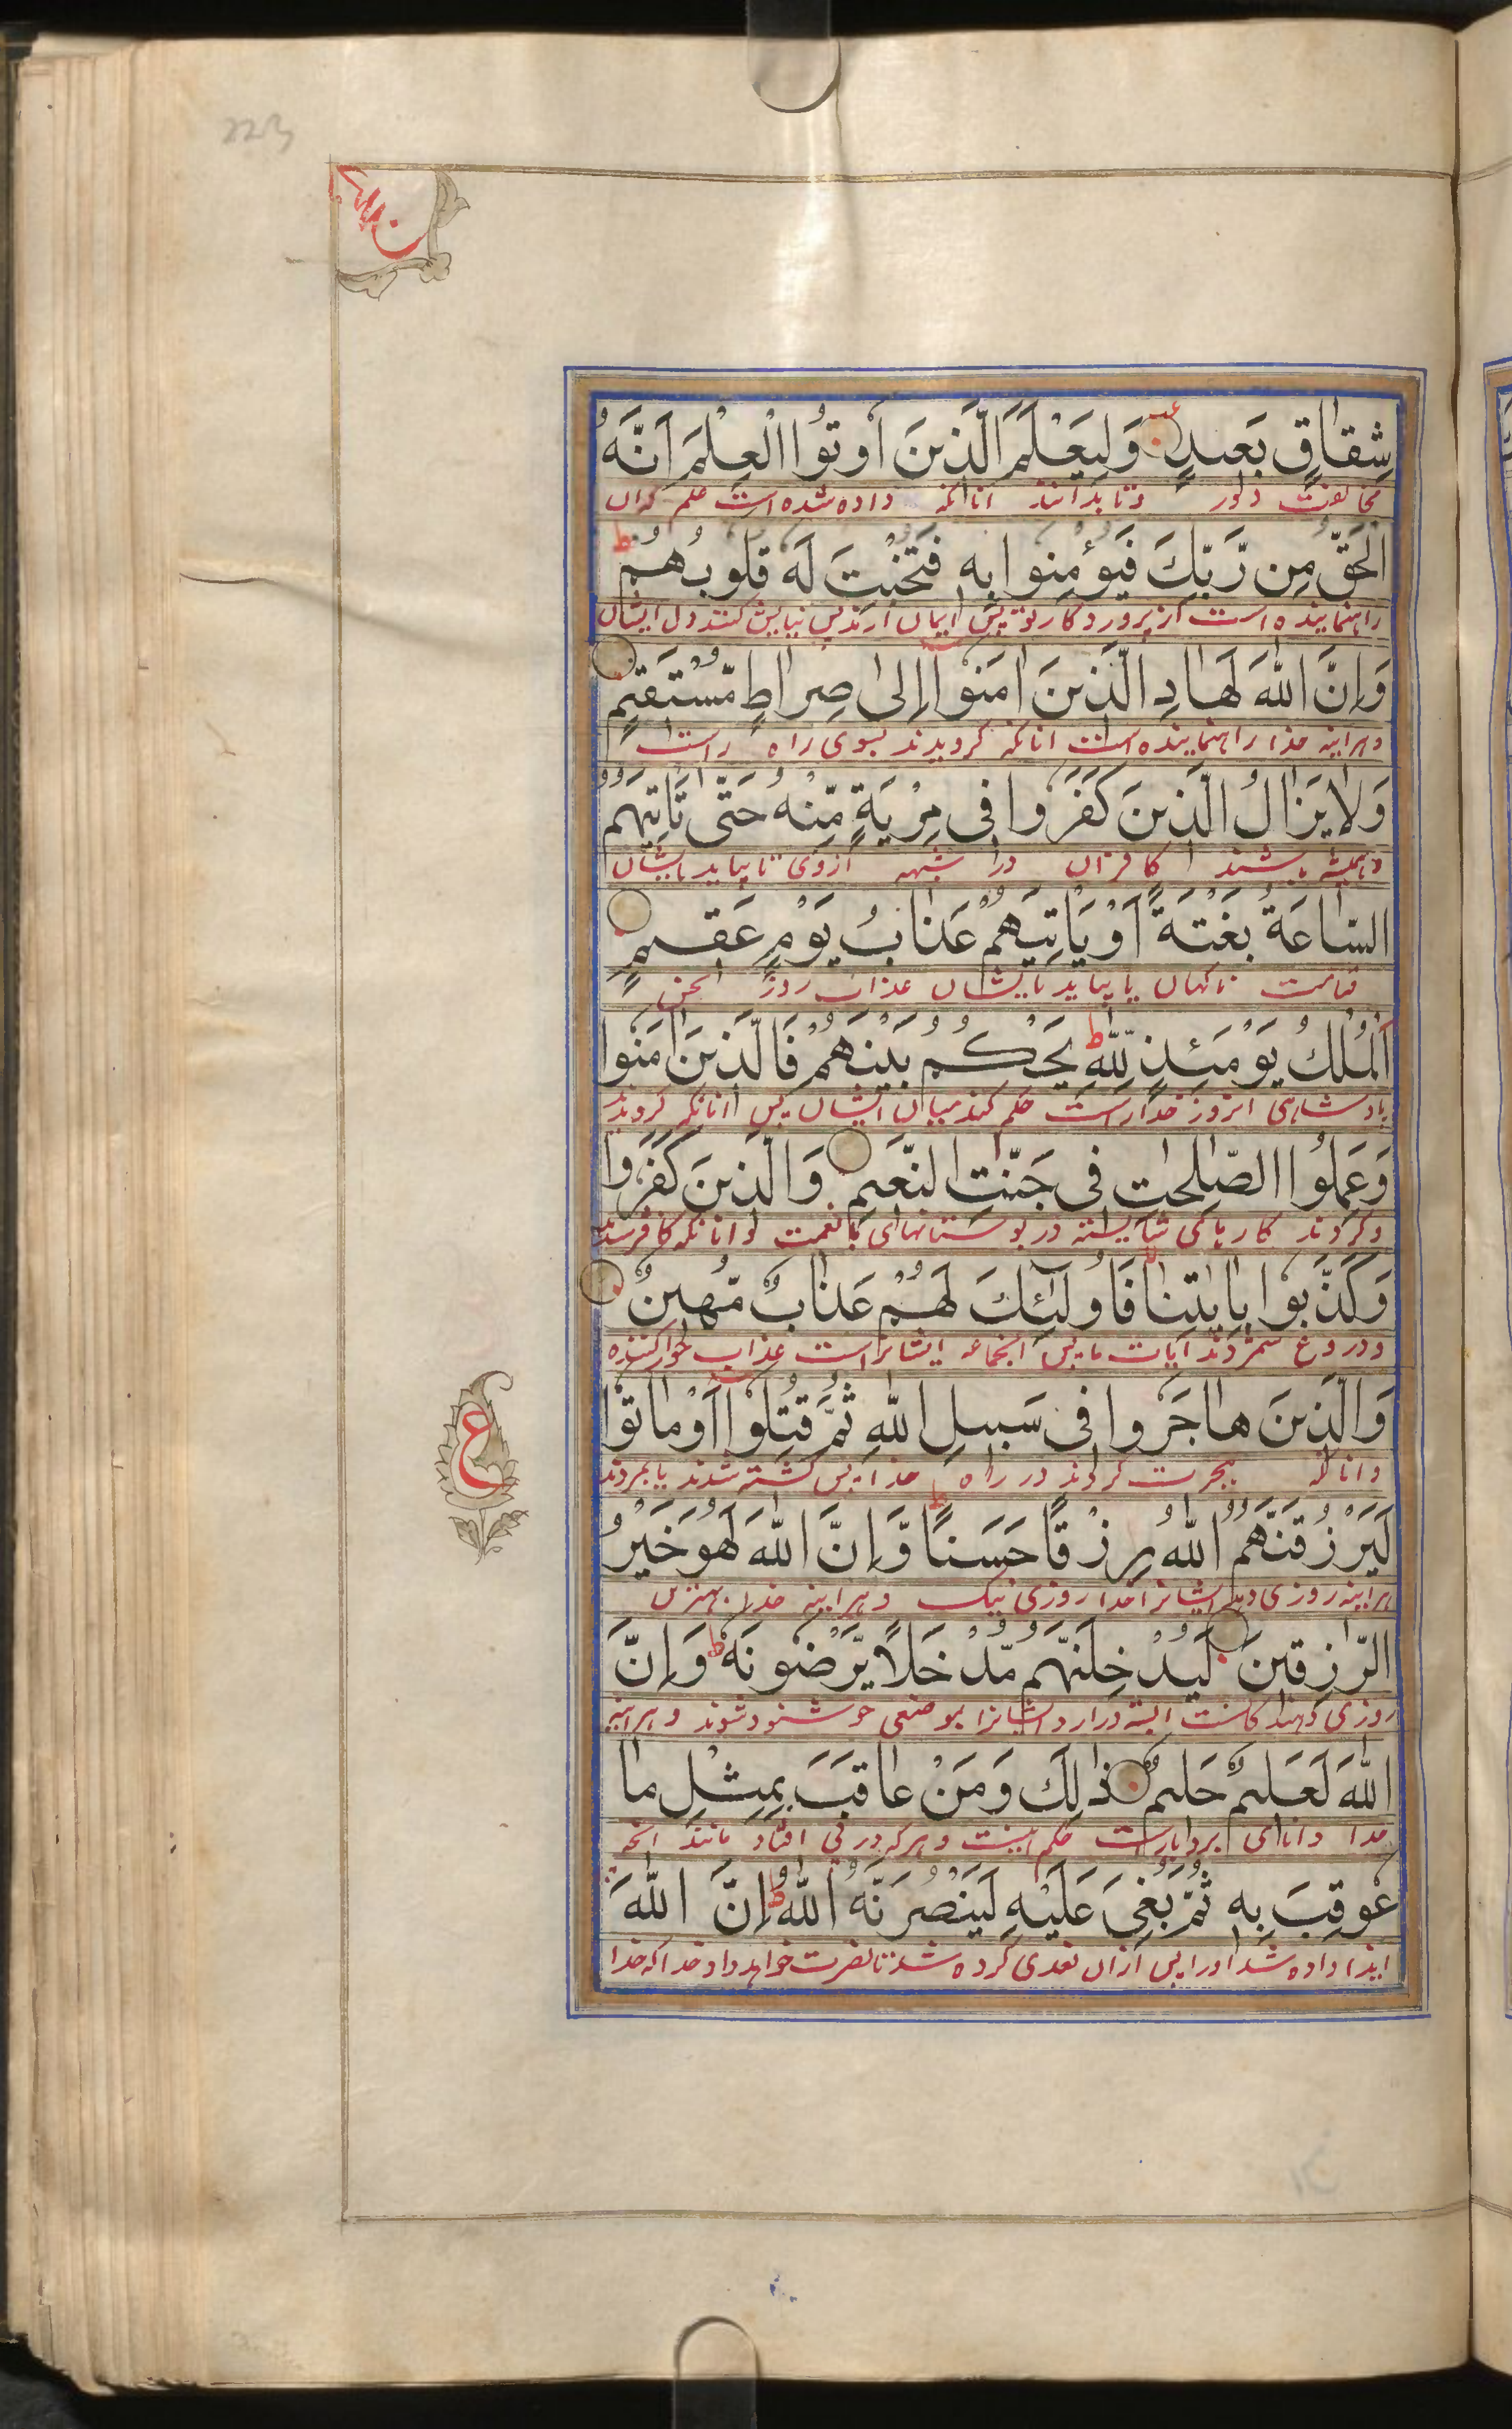 شِقَاقٍ بَعِيدٍ وَلِيَعْلَمَ الَّذِينَ أُوتُوا الْعِلْمَ أَنَّهُ
مخالفت دور وتا بدانند آنانکه داده شده است علم که آن
الْحَقُّ مِن رَّبِّكَ فَيُؤْمِنُوا بِهِ فَتُخْبِتَ لَهُ قُلُوبُهُمْ ط
راهنماینده است از پروردکار تو پس ایمان آرند پس نیایش کنند دل ایشان
وَإِنَّ اللَّهَ لَهَادِ الَّذِينَ اٰمَنُوا إِلَىٰ صِرَاطٍ مُّسْتَقِيمٍ
وهرآینه خدا راهنماینده است آنانکه کرویدند بسوی راه راست
وَلَا يَزَالُ الَّذِينَ كَفَرُوا فِي مِرْيَةٍ مِّنْهُ حَتَّىٰ تَأْتِيَهُمُ
وهمیشه باشند کافران در شبهه ازوی تا بیاید بایشان
السَّاعَةُ بَغْتَةً أَوْ يَأْتِيَهُمْ عَذَابُ يَوْمٍ عَقِيمٍ
قیامت ناکهان یا بیاید بایشان عذاب روز
الْمُلْكُ يَوْمَئِذٍ لِلَّهِ ط يَحْكُمُ بَيْنَهُمْ فَالَّذِينَ اٰمَنُوا
پادشاهی آنروز خدا راست حکم کند میان ایشان پس آنانکه کرویدند
وَعَمِلُوا الصّٰلِحٰتِ فِي جَنّٰتِ النَّعِيمِ وَالَّذِينَ كَفَرُوا
وکردند کارهای شایسته در بوستانهای با نعمت وآنانکه کافر شدند
وَكَذَّبُوا بِاٰيٰتِنَا فَأُولٰٓئِكَ لَهُمْ عَذَابٌ مُّهِينٌ
ودروغ شمردند آیات ما پس آنجماعه ایشانراست عذاب خوارکننده
وَالَّذِينَ هَاجَرُوا فِي سَبِيلِ اللَّهِ ثُمَّ قُتِلُوا أَوْ مَاتُوا
وآنانکه هجرت کردند در راه خدا پس کشته شدند یا بمردند
ع
لَيَرْزُقَنَّهُمُ اللَّهُ رِزْقًا حَسَنًا ط وَإِنَّ اللَّهَ لَهُوَ خَيْرُ
هرآینه روزی دهد ایشانرا خدا روزی نیک وهرآینه خدا بهترین
الرّٰزِقِينَ لَيُدْخِلَنَّهُم مُّدْخَلًا يَّرْضَوْنَهُ ط وَإِنَّ
روزی دهندکانست البته درآرد ایشانرا بموضعی خوشنود شوند وهرآینه
اللَّهَ لَعَلِيمٌ حَلِيمٌ ذٰلِكَ وَمَنْ عَاقَبَ بِمِثْلِ مَا
خدا دانای بردبارست حکم اینست وهرکه مانند آنچه
عُوقِبَ بِهِ ثُمَّ بُغِيَ عَلَيْهِ لَيَنْصُرَنَّهُ اللَّهُ ط إِنَّ اللَّهَ
ایذا داده شد اورا پس ازان تعدی کرده شد نصرت خواهد داد خدا که خدا